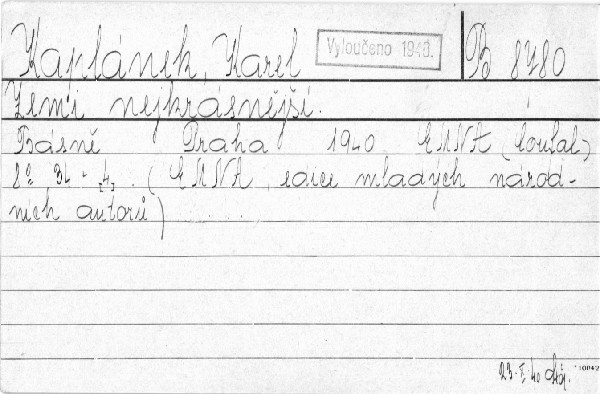 Kaplánek, Karel Vyloučeno 1948. B 8780
Zemi nejkrásnější.
Básně Praha 1940 EMNA (Coufal)
8° 34 - [4]. (EMNA, edice mladých národ-
ních autorů)
23-I-40